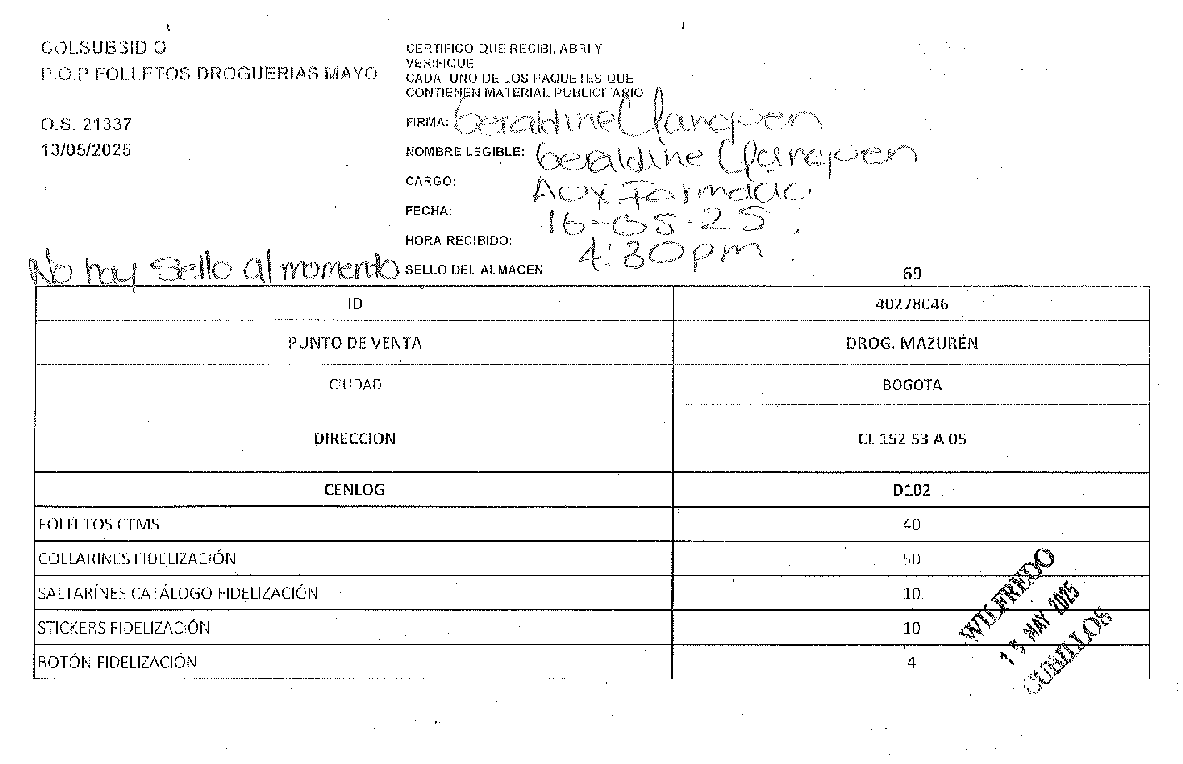 COLSUBSIDIO
P.O.P FOLLETOS DROGUERIAS MAYO
O.S. 21337
13/05/2025
CERTIFICO QUE RECIBI, ABRI Y
VERIFIQUE
CADA UNO DE LOS PAQUETES QUE
CONTIENEN MATERIAL PUBLICITARIO
FIRMA: Geraldine
NOMBRE LEGIBLE: Geraldine
CARGO: Aux Farmacia.
FECHA: 16-05-25
HORA RECIBIDO: 4:30pm
No hay sello al momento SELLO DEL ALMACEN
69
ID 40278046
PUNTO DE VENTA DROG. MAZURÉN
CIUDAD BOGOTA
DIRECCION CL 152 53 A 05
CENLOG D102
FOLLETOS CTMS 40
COLLARINES FIDELIZACIÓN 50
SALTARÍNES CATÁLOGO FIDELIZACIÓN 10
STICKERS FIDELIZACIÓN 10
BOTÓN FIDELIZACIÓN 4
WILFREDO
15 MAY 2025
CUBILLOS